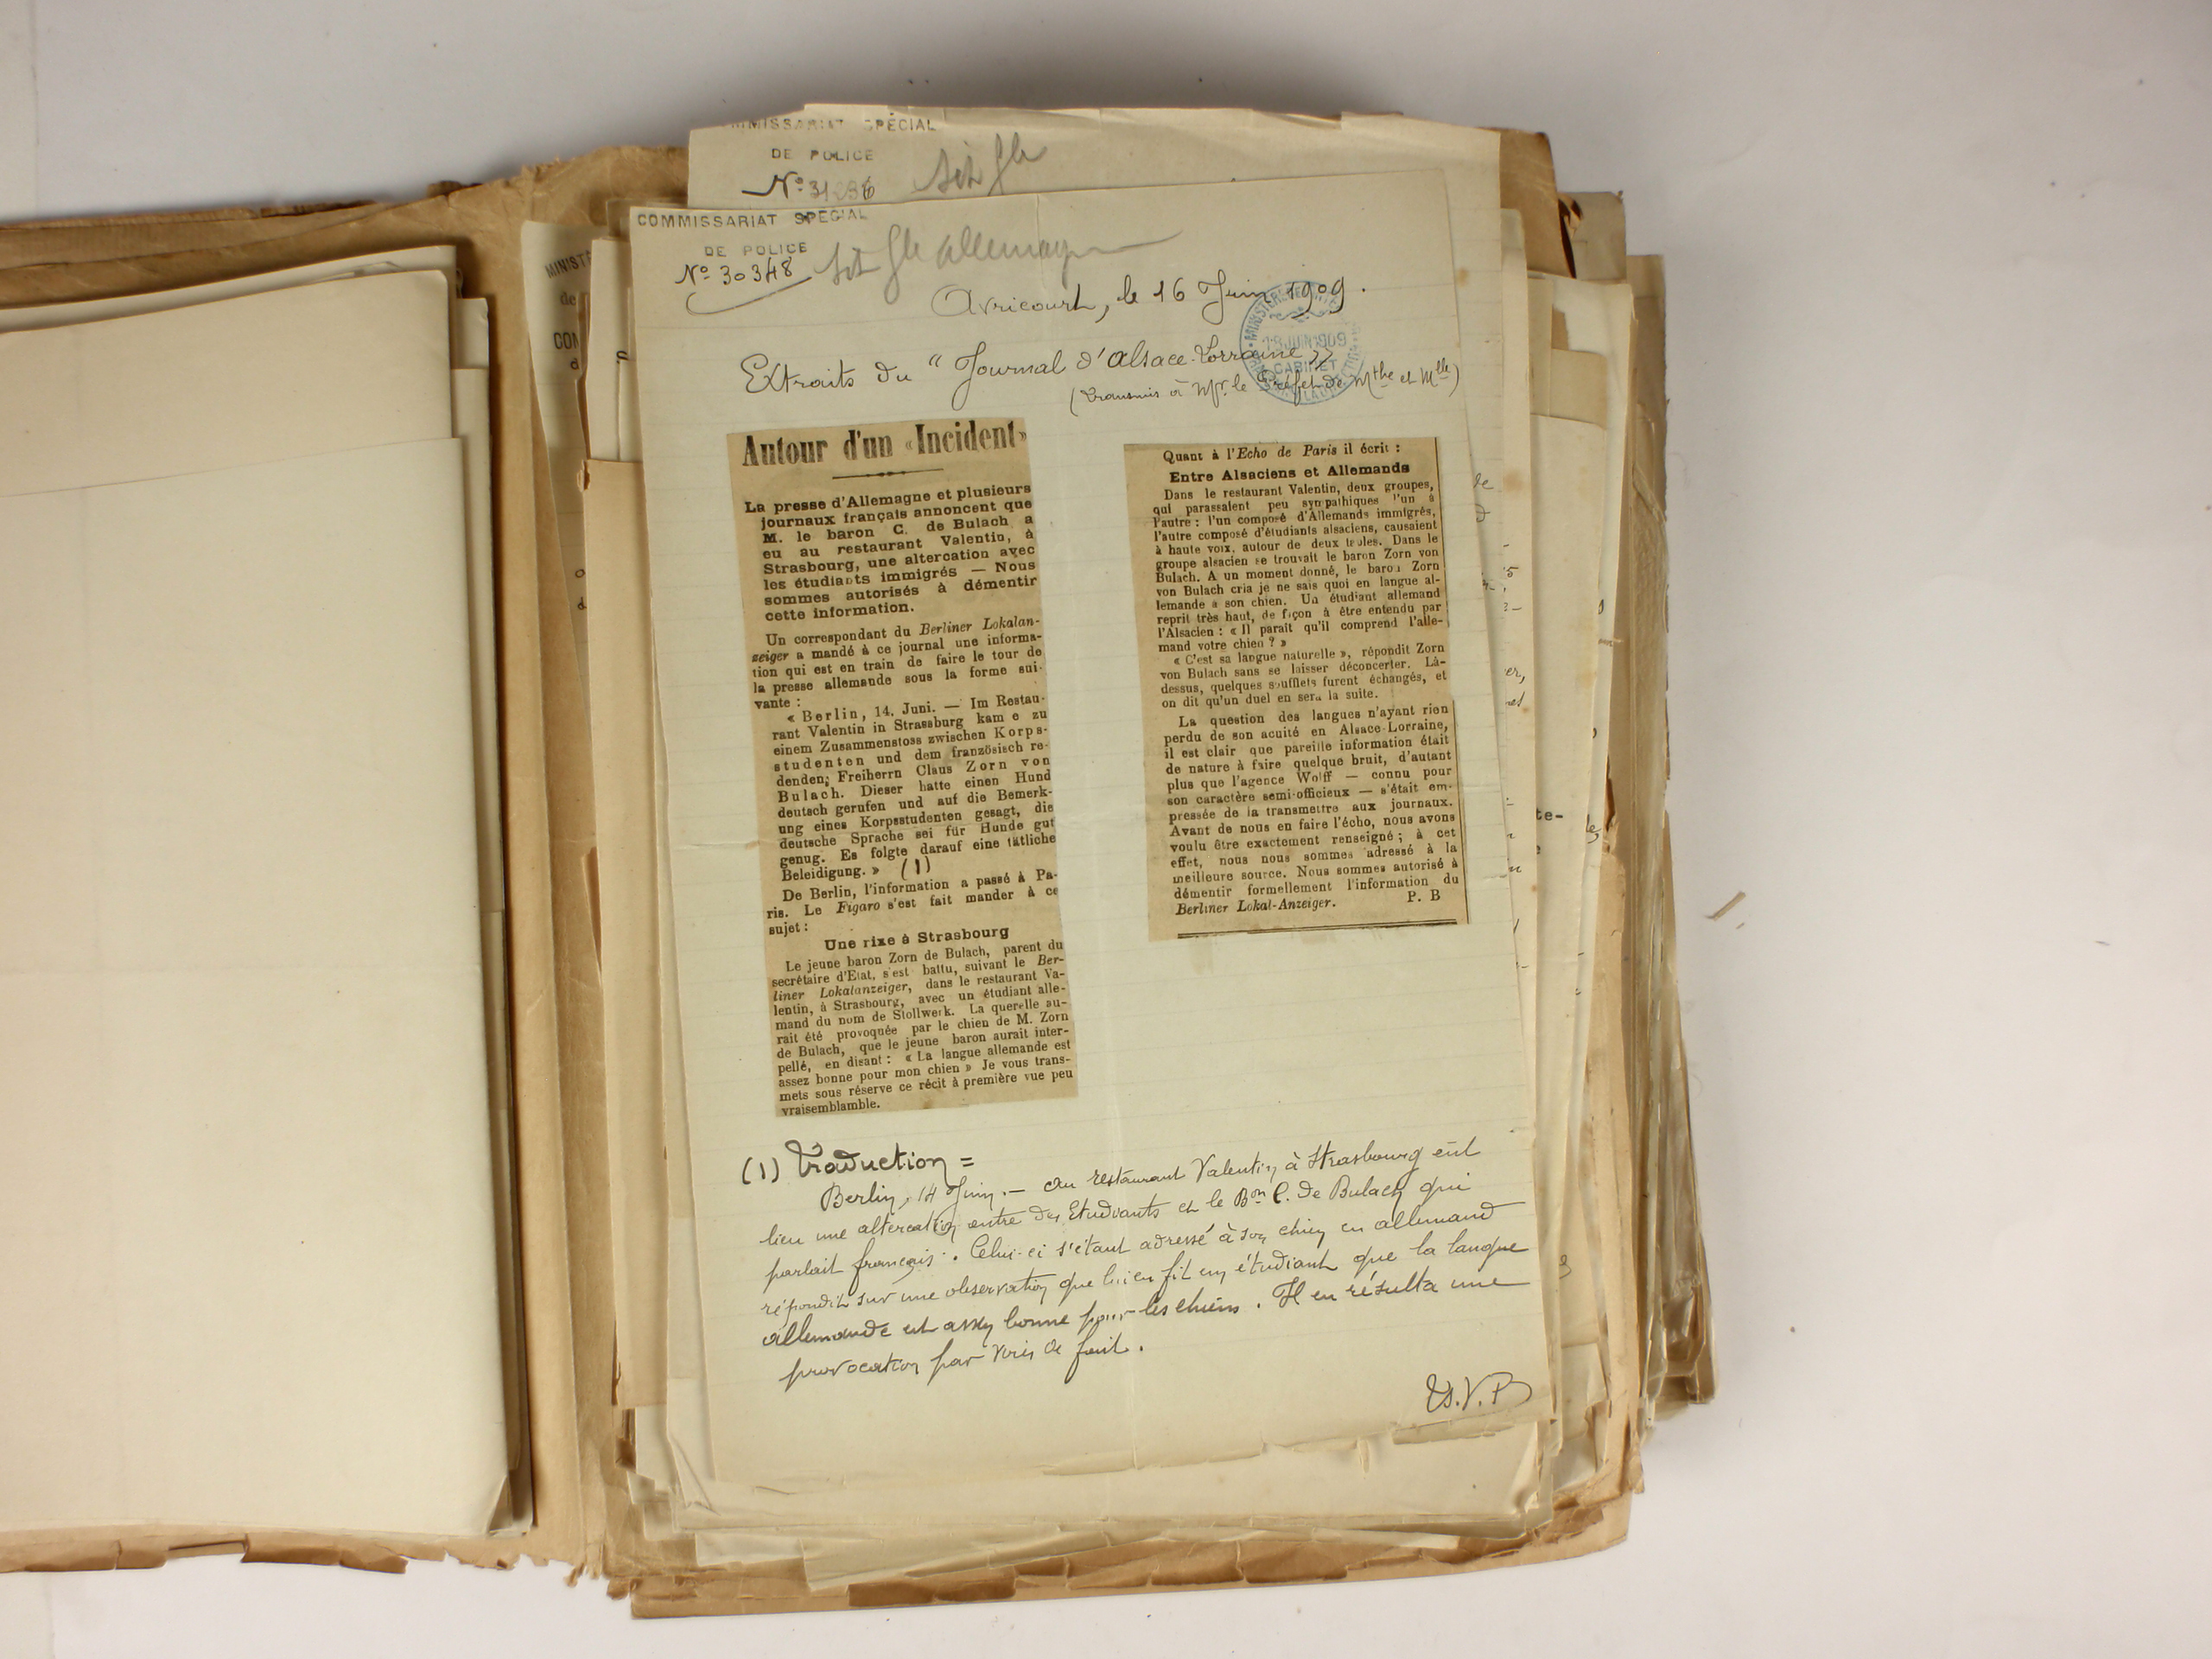 COMMISSARIAT SPÉCIAL
DE POLICE
COMMISSARIAT SPÉCIAL
DE POLICE
Nº 30348
Sit Gle Allemagne
Avricourt, le 16 Juin 1909.
18 JUIN 1909
CABINET
Extraits du "Journal d'Alsace-Lorraine"
(Transmis à Mr. le Préfet de Mthe et Mlle)
Autour d'un «Incident»
La presse d'Allemagne et plusieurs
journaux français annoncent que
M. le baron C. de Bulach a
eu au restaurant Valentin, à
Strasbourg, une altercation avec
les étudiants immigrés — Nous
sommes autorisés à démentir
cette information.
Un correspondant du Berliner Lokalan-
zeiger a mandé à ce journal une informa-
tion qui est en train de faire le tour de
la presse allemande sous la forme sui-
vante :
« Berlin, 14. Juni. — Im Restau-
rant Valentin in Strassburg kam e zu
einem Zusammenstoss zwischen Korps-
studenten und dem französisch re-
denden; Freiherrn Claus Zorn von
Bulach. Dieser hatte einen Hund
deutsch gerufen und auf die Bemerk-
ung eines Korpsstudenten gesagt, die
deutsche Sprache sei für Hunde gut
genug. Es folgte darauf eine tätliche
Beleidigung. » (1)
De Berlin, l'information a passé à Pa-
ris. Le Figaro s'est fait mander à ce
sujet :
Une rixe à Strasbourg
Le jeune baron Zorn de Bulach, parent du
secrétaire d'Etat, s'est battu, suivant le Ber-
liner Lokalanzeiger, dans le restaurant Va-
lentin, à Strasbourg, avec un étudiant alle-
mand du nom de Stollwerk. La querelle au-
rait été provoquée par le chien de M. Zorn
de Bulach, que le jeune baron aurait inter-
pellé, en disant : « La langue allemande est
assez bonne pour mon chien » Je vous trans-
mets sous réserve ce récit à première vue peu
vraisemblamble.
Quant à l'Echo de Paris il écrit :
Entre Alsaciens et Allemands
Dans le restaurant Valentin, deux groupes,
qui parassaient peu sympathiques l'un à
l'autre : l'un composé d'Allemands immigrés,
l'autre composé d'étudiants alsaciens, causaient
à haute voix, autour de deux tables. Dans le
groupe alsacien se trouvait le baron Zorn von
Bulach. A un moment donné, le baron Zorn
von Bulach cria je ne sais quoi en langue al-
lemande à son chien. Un étudiant allemand
reprit très haut, de façon à être entendu par
l'Alsacien : « Il paraît qu'il comprend l'alle-
mand votre chien ? »
« C'est sa langue naturelle », répondit Zorn
von Bulach sans se laisser déconcerter. Là-
dessus, quelques soufflets furent échangés, et
on dit qu'un duel en sera la suite.
La question des langues n'ayant rien
perdu de son acuité en Alsace-Lorraine,
il est clair que pareille information était
de nature à faire quelque bruit, d'autant
plus que l'agence Wolff — connu pour
son caractère semi-officieux — s'était em-
pressée de la transmettre aux journaux.
Avant de nous en faire l'écho, nous avons
voulu être exactement renseigné ; à cet
effet, nous nous sommes adressé à la
meilleure source. Nous sommes autorisé à
démentir formellement l'information du
Berliner Lokal-Anzeiger. P. B
(1) Traduction =
Berlin, 14 Juin. — Au restaurant Valentin, à Strasbourg eût
lieu une altercation entre des Etudiants et le Bon C. de Bulach qui
parlait français. Celui-ci s'étant adressé à son chien en allemand
répondit sur une observation que lui en fit un étudiant que la langue
allemande est assez bonne pour les chiens. Il en résulta une
provocation par voies de fait.
T.S.V.P